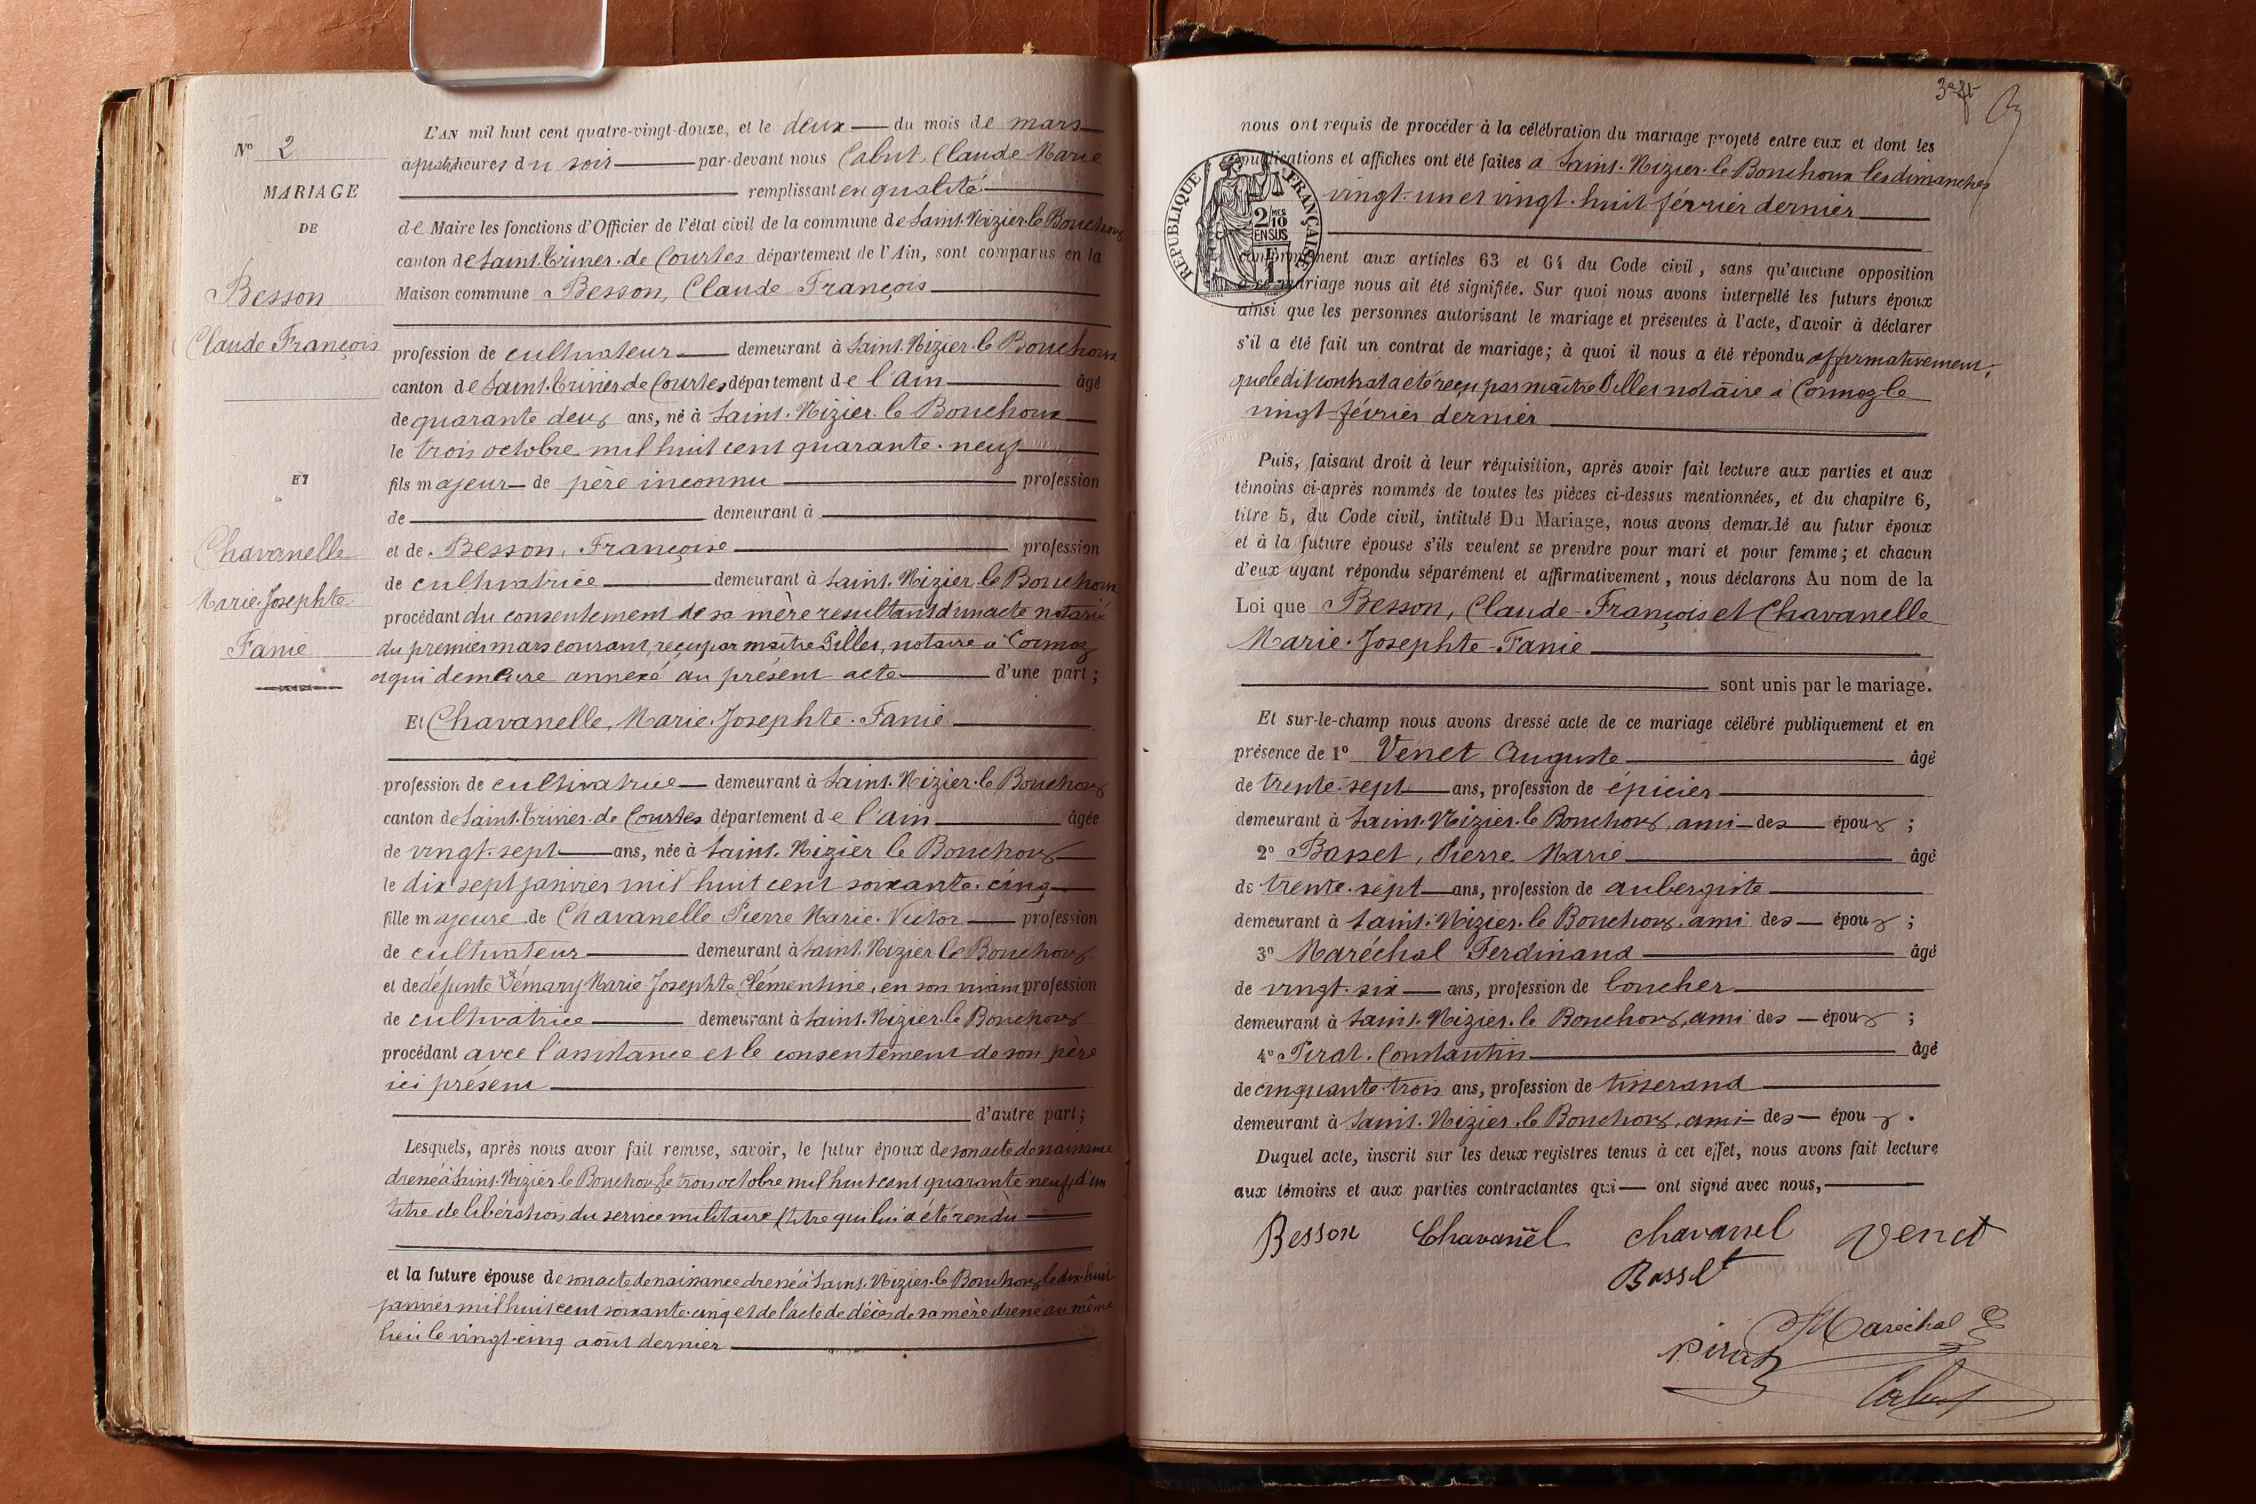 L'AN mil huit cent quatre-vingt-douze, et le deux du mois de mars
Nº 2
à quatre heures du soir par-devant nous Cabut, Claude Marie
MARIAGE
remplissant en qualité
DE
de Maire les fonctions d'Officier de l'état civil de la commune de Saint-Nizier-le-Bouchoux
canton de Saint-Trivier-de-Courtes département de l'Ain, sont comparus en la
Besson
Claude François
Maison commune Besson, Claude François
profession de cultivateur demeurant à Saint-Nizier-le-Bouchoux
canton de Saint-Trivier-de-Courtes département de l'Ain âgé
de quarante deux ans, né à Saint-Nizier-le-Bouchoux
le trois octobre mil huit cent quarante-neuf
ET
fils majeur de père inconnu profession
de demeurant à
Chavanelle
Marie-Josephte
Fanie
et de Besson, Françoise profession
de cultivatrice demeurant à Saint-Nizier-le-Bouchoux
procédant du consentement de sa mère resultant d'un acte notarié
du premier mars courant, reçu par maître Piller, notaire à Cormoz
et qui demeure annexé au présent acte d'une part ;
Et Chavanelle, Marie-Josephte-Fanie
profession de cultivatrice demeurant à Saint-Nizier-le-Bouchoux
canton de Saint-Trivier-de-Courtes département de l'Ain âgée
de vingt-sept ans, née à Saint-Nizier le Bouchoux
le dix sept janvier mil huit cent soixante-cinq
fille majeure de Chavanelle Pierre Marie-Victor profession
de cultivateur demeurant à Saint-Nizier le Bouchoux
et de défunte Démary Marie Josephte Clémentine, en son vivant profession
de cultivatrice demeurant à Saint-Nizier-le-Bouchoux
procédant avec l'assistance et le consentement de son père
ici présent
d'autre part ;
Lesquels, après nous avoir fait remise, savoir, le futur époux de son acte de naissance
dressé à Saint-Nizier-le-Bouchoux le trois octobre mil huit cent quarante neuf, d'un
titre de libération du service militaire, titre qui lui a été rendu
et la future épouse de son acte de naissance dressé à Saint-Nizier-le-Bouchoux le dix-huit
janvier mil huit cent soixante-cinq et de l'acte de décès de sa mère dressé au même
lieu le vingt-cinq août dernier
nous ont requis de procéder à la célébration du mariage projeté entre eux et dont les
publications et affiches ont été faites à Saint-Nizier-le-Bouchoux les dimanches
vingt-un et vingt-huit février dernier
RÉPUBLIQUE FRANÇAISE
2/10
EN SUS
conformément aux articles 63 et 64 du Code civil, sans qu'aucune opposition
à ce mariage nous ait été signifiée. Sur quoi nous avons interpellé les futurs époux
ainsi que les personnes autorisant le mariage et présentes à l'acte, d'avoir à déclarer
s'il a été fait un contrat de mariage ; à quoi il nous a été répondu affirmativement,
que le dit contrat a été reçu par maître Piller notaire à Cormoz le
vingt février dernier
Puis, faisant droit à leur réquisition, après avoir fait lecture aux parties et aux
témoins ci-après nommés de toutes les pièces ci-dessus mentionnées, et du chapitre 6,
titre 5, du Code civil, intitulé Du Mariage, nous avons demandé au futur époux
et à la future épouse s'ils veulent se prendre pour mari et pour femme ; et chacun
d'eux ayant répondu séparément et affirmativement, nous déclarons Au nom de la
Loi que Besson, Claude-François et Chavanelle
Marie-Josephte-Fanie
sont unis par le mariage.
Et sur-le-champ nous avons dressé acte de ce mariage célébré publiquement et en
présence de 1º Venet Auguste âgé
de trente-sept ans, profession de épicier
demeurant à Saint-Nizier-le-Bouchoux, ami des époux ;
2º Basset, Pierre Marie âgé
de trente-sept ans, profession de aubergiste
demeurant à Saint-Nizier-le-Bouchoux, ami des époux ;
3º Maréchal Ferdinand âgé
de vingt-six ans, profession de boucher
demeurant à Saint-Nizier-le Bouchoux, ami des époux ;
4º Pirat-Constantin âgé
de cinquante-trois ans, profession de tisserand
demeurant à Saint-Nizier-le Bouchoux, ami des époux .
Duquel acte, inscrit sur les deux registres tenus à cet effet, nous avons fait lecture
aux témoins et aux parties contractantes qui ont signé avec nous,
Besson Chavanel chavanel Venet
Basset
Maréchal
Pirat
Cabut